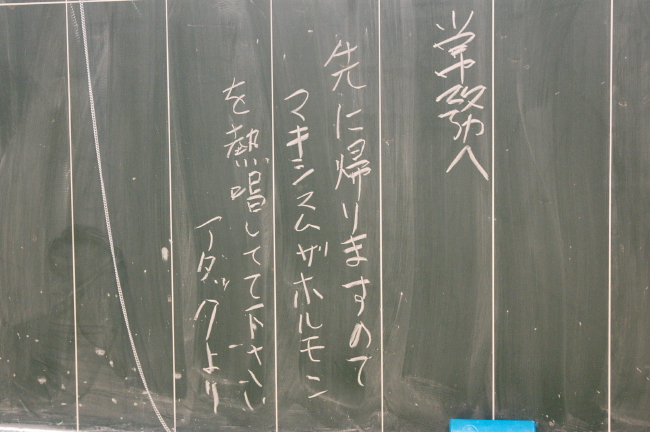 常務へ
先に帰りますので
マキシマムザホルモン
を熱唱してて下さい
イダックより